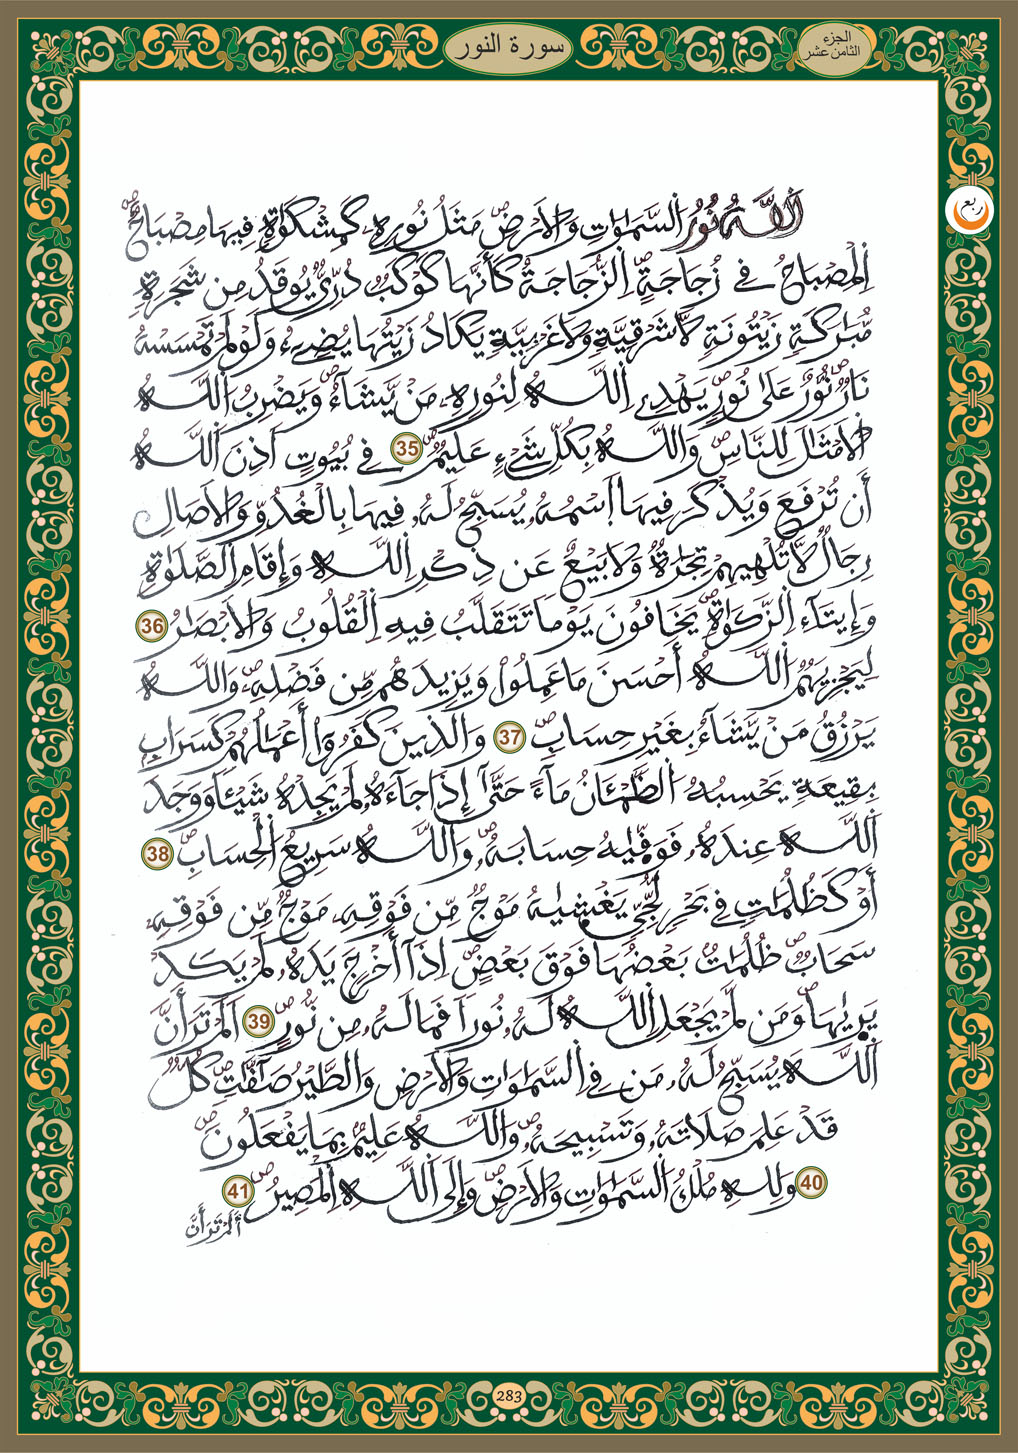 سورة النور
الجزء
الثامن عشر
ربع
اَللَّهُ نُورُ السَّمَٰوَٰتِ وَالَارْضِۖ مَثَلُ نُورِهِۦ كَمِشْكَوٰةٖ فِيهَا مِصْبَاحٌۖ
اِ۬لْمِصْبَاحُ فِے زُجَاجَةٍۖ اِ۬لزُّجَاجَةُ كَأَنَّهَا كَوْكَبٞ دُرِّيّٞ يُوقَدُ مِن شَجَرَةٖ
مُّبَٰرَكَةٖ زَيْتُونَةٖ لَّا شَرْقِيَّةٖ وَلَا غَرْبِيَّةٖ يَكَادُ زَيْتُهَا يُضِےٓءُ وَلَوْ لَمْ تَمْسَسْهُ
نَارٞۖ نُّورٌ عَلَىٰ نُورٖۖ يَهْدِے اِ۬للَّهُ لِنُورِهِۦ مَنْ يَّشَآءُۖ وَيَضْرِبُ اُ۬للَّهُ
اُ۬لَامْثَٰلَ لِلنَّاسِۖ وَاللَّهُ بِكُلِّ شَےْءٍ عَلِيمٞۖ 35 فِے بُيُوتٍ اَذِنَ اَ۬للَّهُ
أَن تُرْفَعَ وَيُذْكَرَ فِيهَا اَ۪سْمُهُۥ يُسَبِّحُ لَهُۥ فِيهَا بِالْغُدُوِّ وَالَاصَالِ
رِجَالٞ لَّا تُلْهِيهِمْ تِجَٰرَةٞ وَلَا بَيْعٌ عَن ذِكْرِ اِ۬للَّهِ وَإِقَامِ اِ۬لصَّلَوٰةِ
وَإِيتَآءِ اِ۬لزَّكَوٰةِۖ يَخَافُونَ يَوْماٗ تَتَقَلَّبُ فِيهِ اِ۬لْقُلُوبُ وَالَابْصَٰرُ 36
لِيَجْزِيَهُمُ اُ۬للَّهُ أَحْسَنَ مَا عَمِلُواْ وَيَزِيدَهُم مِّن فَضْلِهِۦۖ وَاللَّهُ
يَرْزُقُ مَنْ يَّشَآءُ بِغَيْرِ حِسَابٖۖ 37 وَالذِينَ كَفَرُوٓاْ أَعْمَٰلُهُمْ كَسَرَابِۭ
بِقِيعَةٖ يَحْسِبُهُ اُ۬لظَّمْـَٔانُ مَآءً حَتَّىٰٓ إِذَا جَآءَهُۥ لَمْ يَجِدْهُ شَيْـٔاٗ وَوَجَدَ
اَ۬للَّهَ عِندَهُۥ فَوَفّ۪يٰهُ حِسَابَهُۥۖ وَاللَّهُ سَرِيعُ اُ۬لْحِسَابِۖ 38
أَوْ كَظُلُمَٰتٖ فِے بَحْرٖ لُّجِّيّٖ يَغْش۪يٰهُ مَوْجٞ مِّن فَوْقِهِۦ مَوْجٞ مِّن فَوْقِهِۦ
سَحَابٞۖ ظُلُمَٰتُۢ بَعْضُهَا فَوْقَ بَعْضٍۖ اِذَآ أَخْرَجَ يَدَهُۥ لَمْ يَكَدْ
يَر۪يٰهَاۖ وَمَن لَّمْ يَجْعَلِ اِ۬للَّهُ لَهُۥ نُوراٗ فَمَا لَهُۥ مِن نُّورٍۖ 39 اَلَمْ تَرَ أَنَّ
اَ۬للَّهَ يُسَبِّحُ لَهُۥ مَن فِے اِ۬لسَّمَٰوَٰتِ وَالَارْضِ وَالطَّيْرُ صَٰٓفَّٰتٖۖ كُلّٞ
قَدْ عَلِمَ صَلَاتَهُۥ وَتَسْبِيحَهُۥۖ وَاللَّهُ عَلِيمُۢ بِمَا يَفْعَلُونَۖ
40 وَلِلهِ مُلْكُ اُ۬لسَّمَٰوَٰتِ وَالَارْضِۖ وَإِلَى اَ۬للَّهِ اِ۬لْمَصِيرُۖ 41
أَلَمْ تَرَ أَنَّ
283